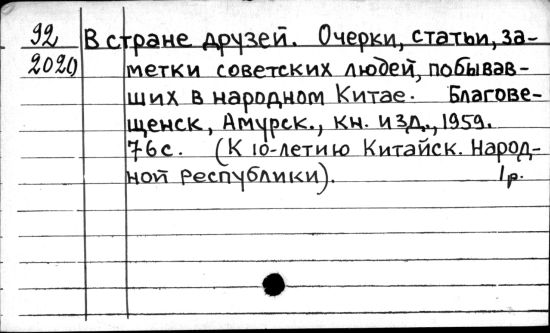 92 В стране друзей. Очерки, статьи, за-
2020 метки советских людей, побывав-
ших в народном Китае. Благове-
щенск, Амурск., кн. изд., 1959.
76 с. (К 10-летию Китайск. Народ-
ной республики). 1р.